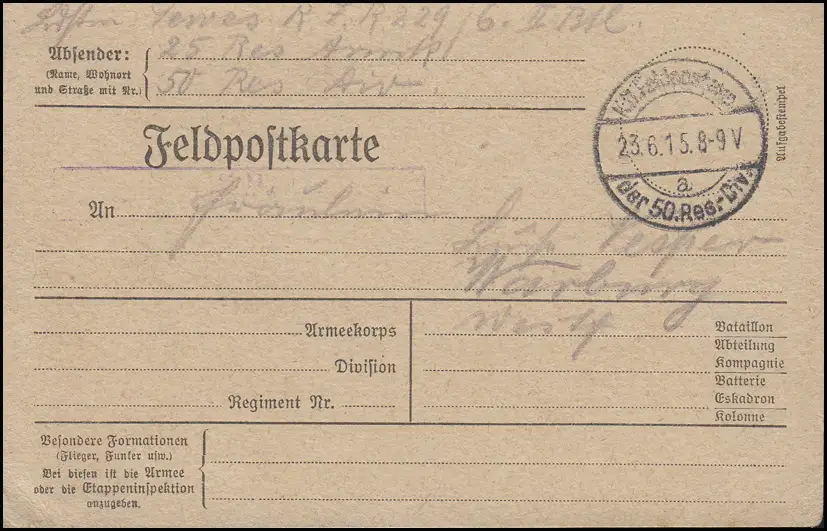 Tewes R. I. R 229 / 6. II Btl.
Absender: 25 Res Armeekp
(Name, Wohnort
und Straße mit Nr.) 50 Res Div.
K.D.Feldpostexp.
23.6.15.8-9V
a
der 50.Res.-Div.
Aufgabestempel
Feldpostkarte
An Fräulein
Vesper
Warburg
Westf
Armeekorps
Division
Regiment Nr.
Bataillon
Abteilung
Kompagnie
Batterie
Eskadron
Kolonne
Besondere Formationen
(Flieger, Funker usw.)
Bei diesen ist die Armee
oder die Etappeninspektion
anzugeben.